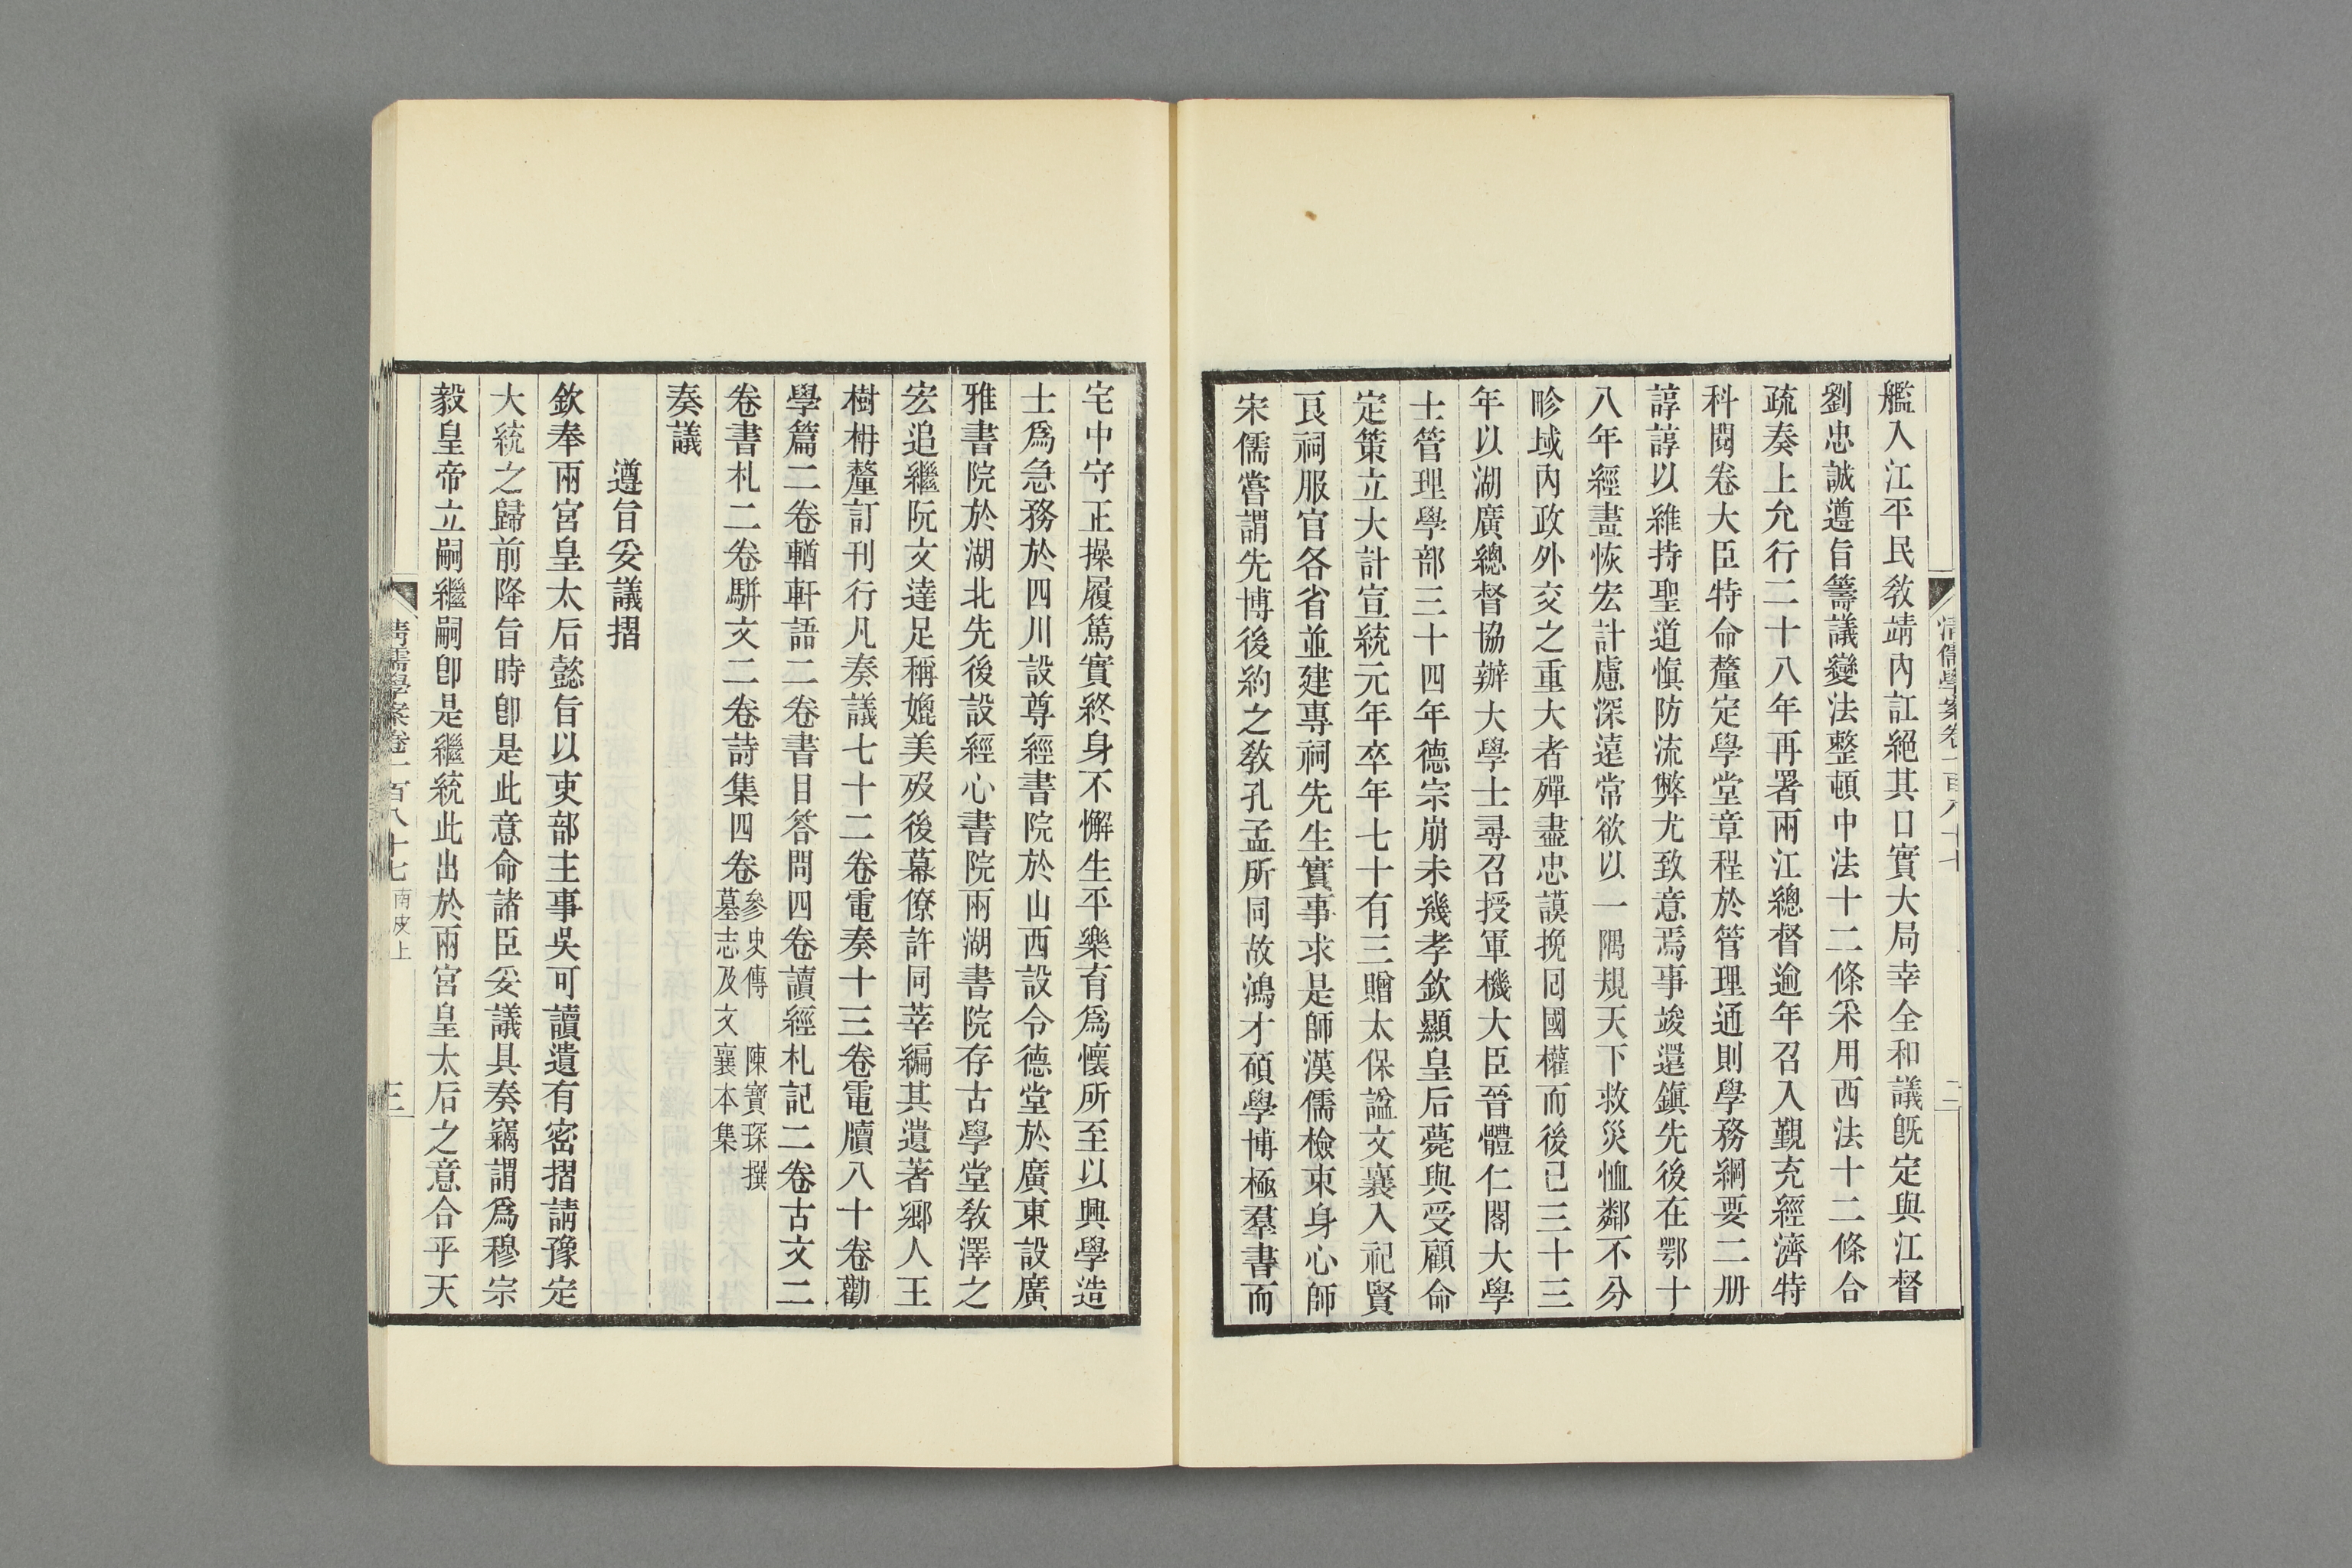 清儒學案卷一百八十七
二
艦入江平民教靖內訌絕其口實大局幸全和議旣定與江督
劉忠誠遵旨籌議變法整頓中法十二條采用西法十二條合
疏奏上允行二十八年再署兩江總督逾年召入覲充經濟特
科閱卷大臣特命釐定學堂章程於管理通則學務綱要二册
諄諄以維持聖道愼防流弊尤致意焉事竣還鎭先後在鄂十
八年經畫恢宏計慮深遠常欲以一隅規天下救災恤鄰不分
畛域內政外交之重大者殫盡忠謨挽囘國權而後已三十三
年以湖廣總督協辦大學士尋召授軍機大臣晉體仁閣大學
士管理學部三十四年德宗崩未幾孝欽顯皇后薨與受顧命
定策立大計宣統元年卒年七十有三贈太保諡文襄入祀賢
良祠服官各省並建專祠先生實事求是師漢儒檢束身心師
宋儒嘗謂先博後約之敎孔孟所同故鴻才碩學博極羣書而
宅中守正操履篤實終身不懈生平樂育爲懷所至以興學造
士爲急務於四川設尊經書院於山西設令德堂於廣東設廣
雅書院於湖北先後設經心書院兩湖書院存古學堂敎澤之
宏追繼阮文達足稱媲美歿後幕僚許同莘編其遺著鄉人王
樹枏釐訂刊行凡奏議七十二卷電奏十三卷電牘八十卷勸
學篇二卷輶軒語二卷書目答問四卷讀經札記二卷古文二
卷書札二卷駢文二卷詩集四卷參史傳　陳寶琛撰
墓志及文襄本集
奏議
遵旨妥議摺
欽奉兩宮皇太后懿旨以吏部主事吳可讀遺有密摺請豫定
大統之歸前降旨時卽是此意命諸臣妥議具奏竊謂爲穆宗
毅皇帝立嗣繼嗣卽是繼統此出於兩宮皇太后之意合乎天
清儒學案卷一百八十七　南皮上
三